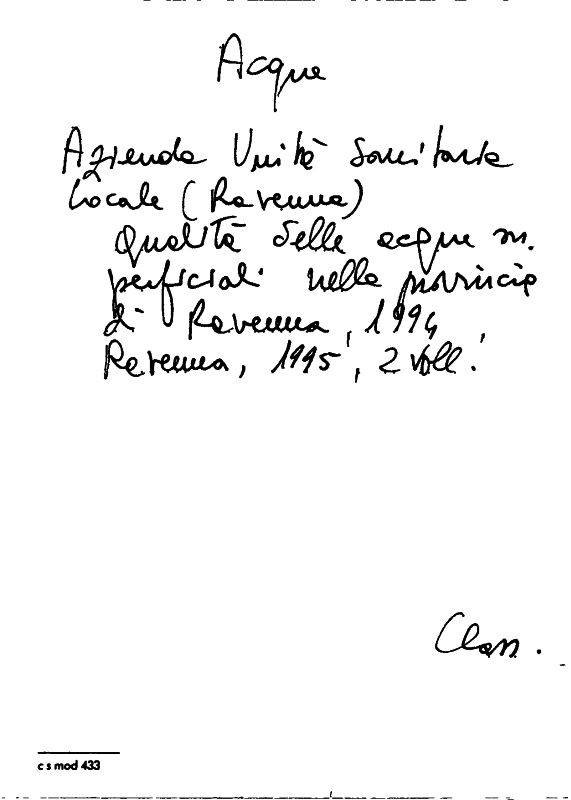 Acque
Azienda Unità Sanitaria
Locale (Ravenna)
Qualità delle acque su.
perficiali nella provincia
di Ravenna, 1994,
Ravenna, 1995, 2 voll.
Class.
c s mod 433